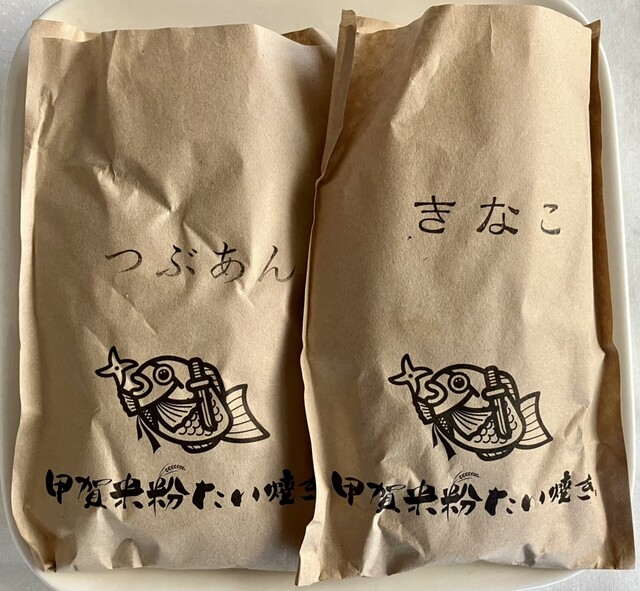 つぶあん
甲賀米粉たい焼き
きなこ
甲賀米粉たい焼き